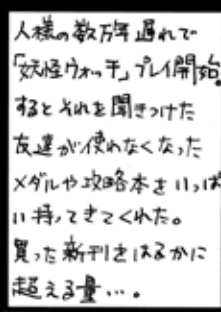 人様の数万年遅れで
「妖怪ウォッチ」プレイ開始。
するとそれを聞きつけた
友達が使わなくなった
メダルや攻略本をいっぱ
い持ってきてくれた。
買った新刊をはるかに
超える量…。